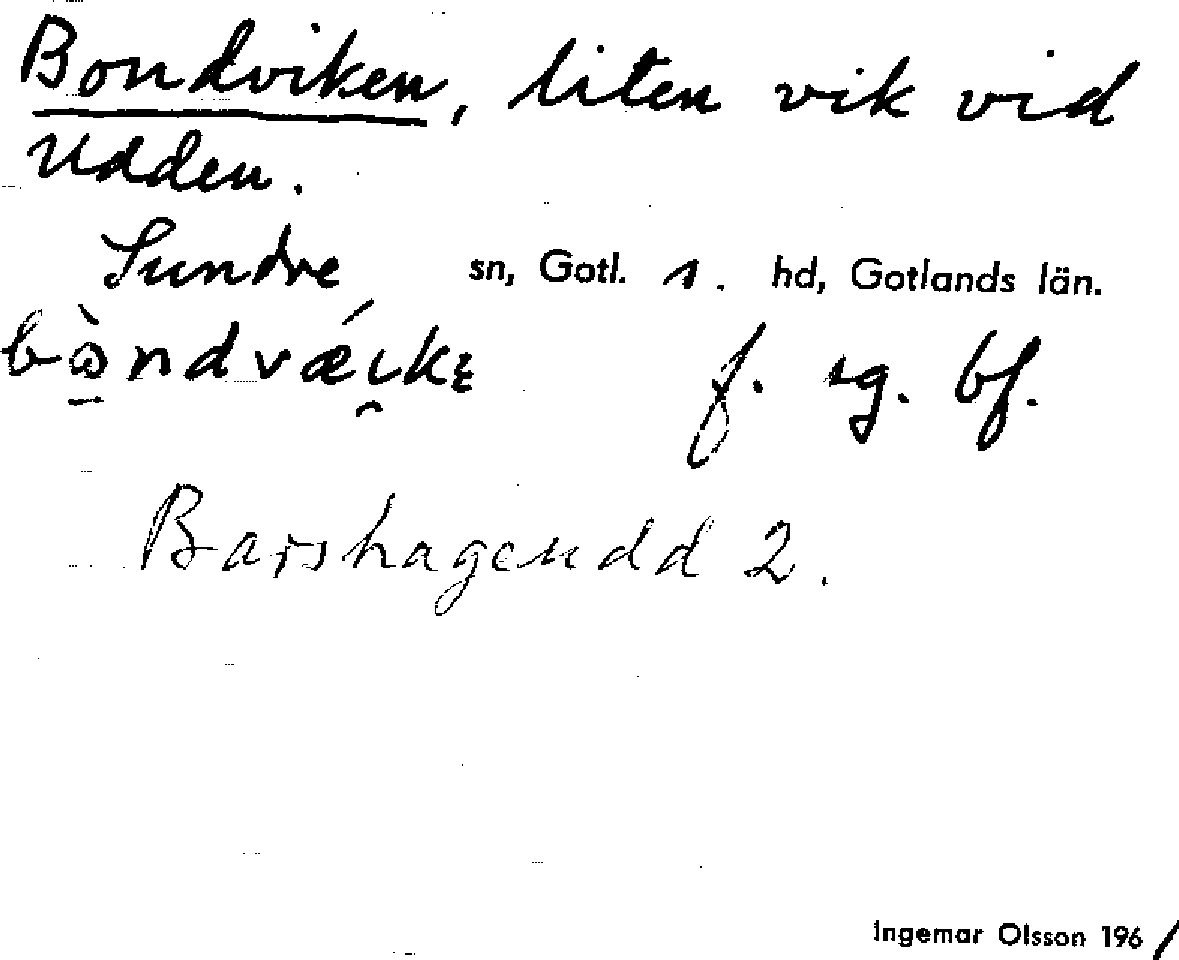 Bondviken, liten vik vid
Udden.
Sundre sn, Gotl. s. hd, Gotlands län.
f. sg. bf.
Barshageudd 2.
Ingemar Olsson 1961